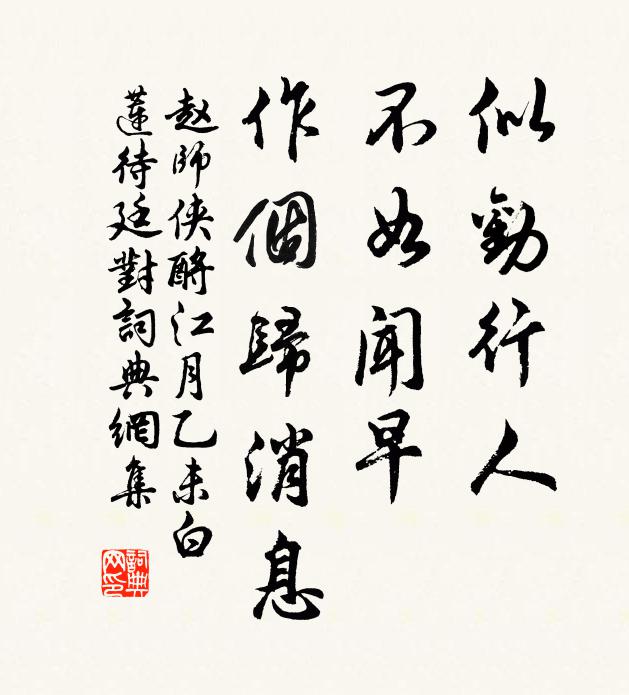 似勸行人
不如聞早
作個歸消息
赵師侠酹江月乙未白
蓮待廷對詞典網集
詞典网印